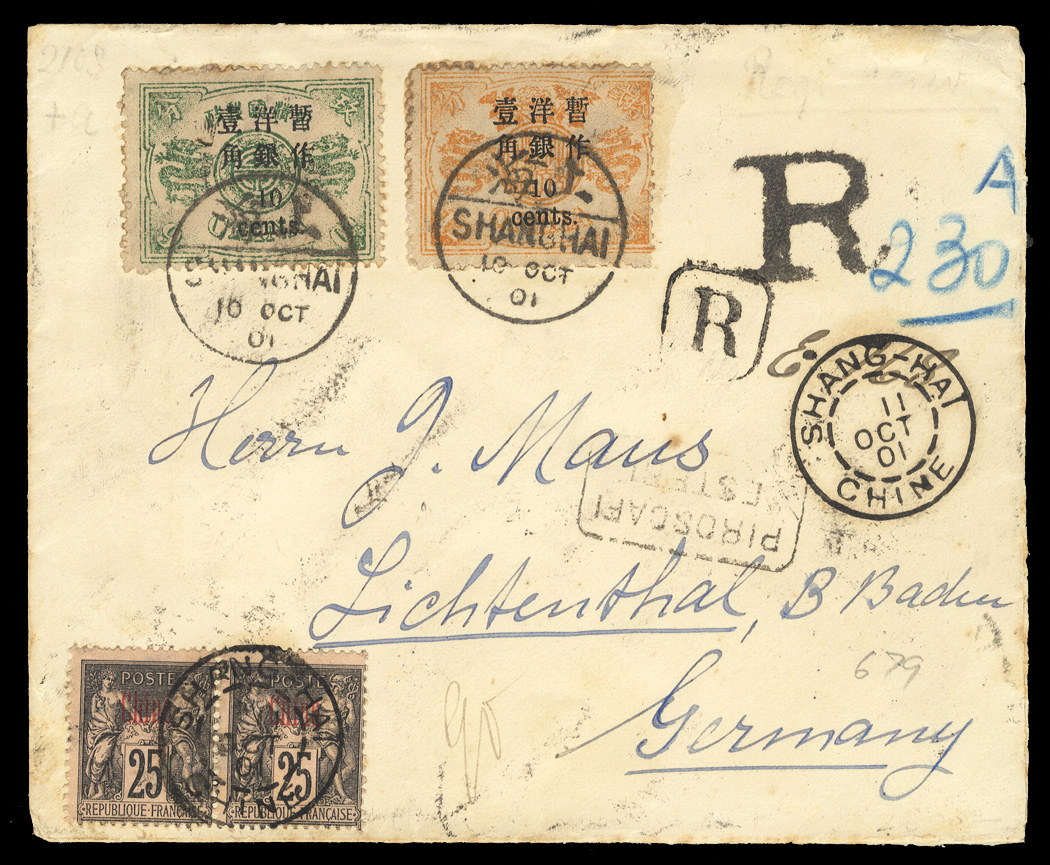 2103
暫作
洋銀
壹角
10
cents.
暫作
洋銀
壹角
10
cents.
上海
SHANGHAI
10 OCT
01
上海
SHANGHAI
10 OCT
01
R
A
230
R
SHANG-HAI
11
OCT
01
CHINE
Herrn J. Maus
PIROSCAFI
ESTERI
Lichtenthal, B Baden
679
Germany
POSTE
Chine
25
REPUBLIQUE·FRANÇAISE
POSTE
Chine
25
REPUBLIQUE·FRANÇAISE
SHANG-HAI